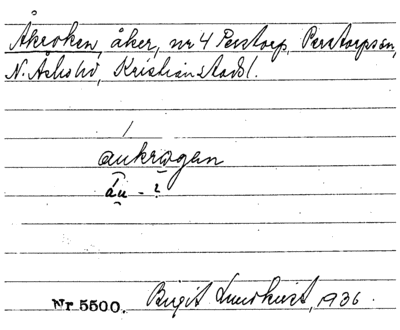 Åkroken, åker, nr 4 Perstorp, Perstorps sn,
N. Åsbo hd, Kristianstads l.
áukrǫgen
áu̯ - ?
Nr 5500. Birgit Lundkvist, 1936.